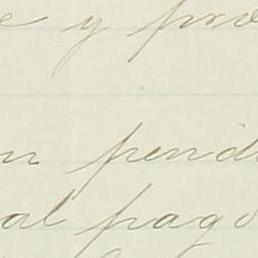 e y pro
n pendi
al pago